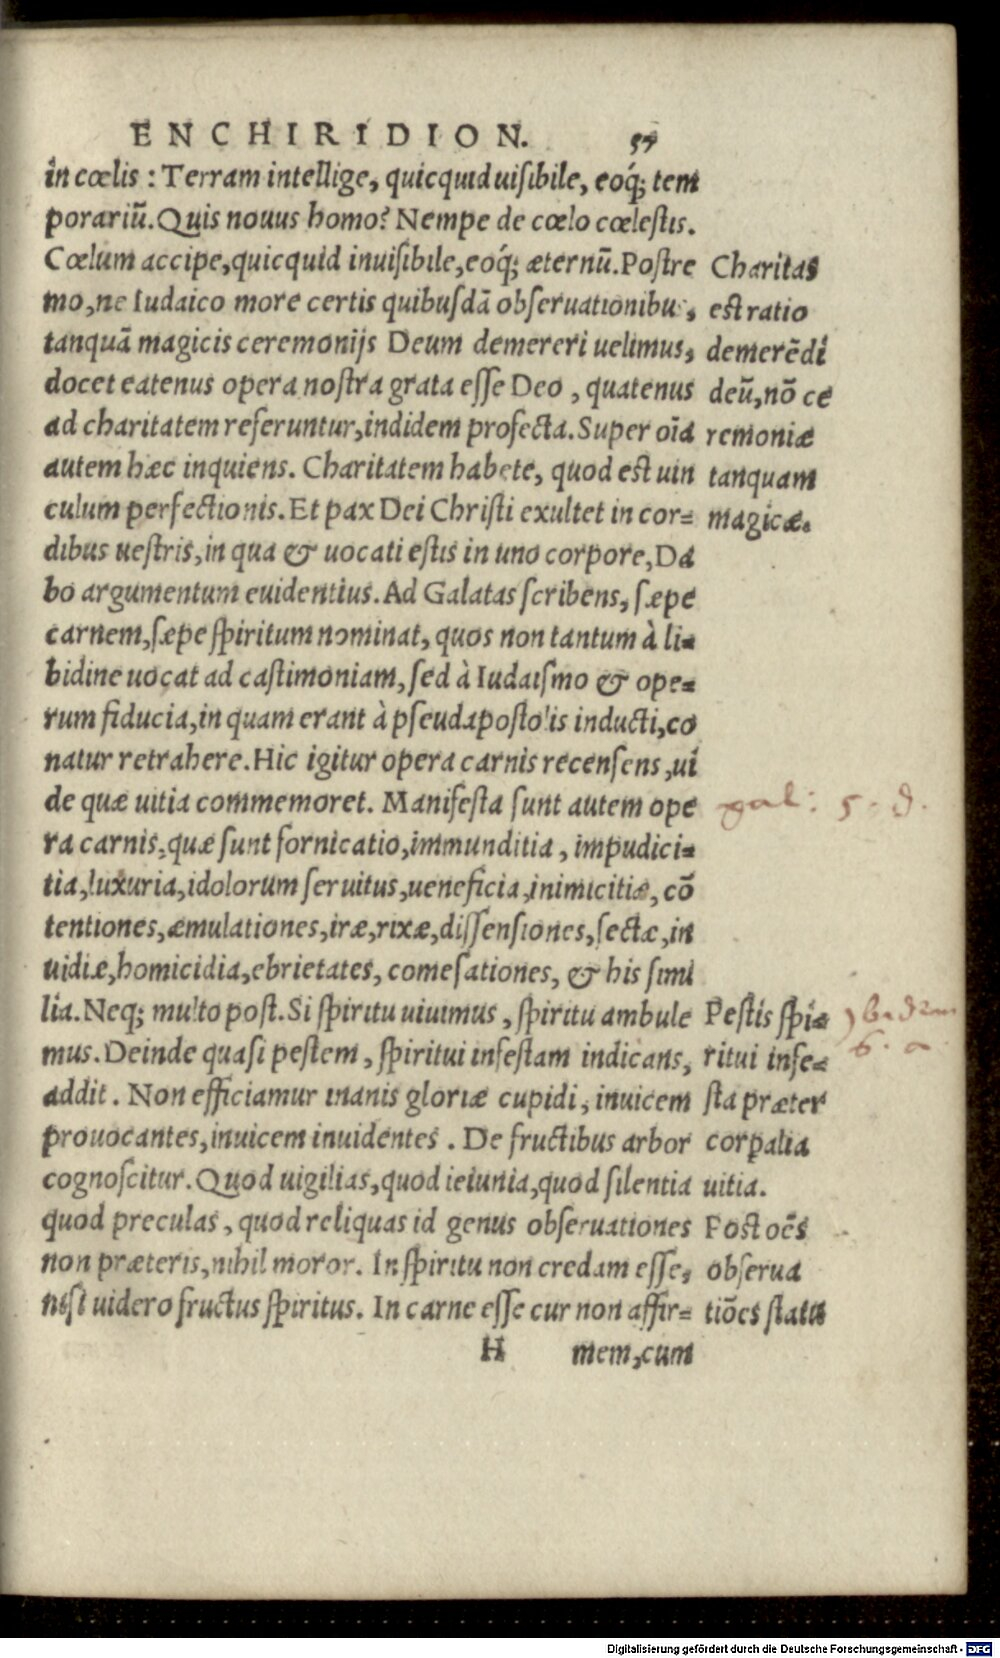 ENCHIRIDION. 57
in cœlis : Terram intellige, quicquid uisibile, eoq́; tem
porariū. Quis nouus homo? Nempe de cœlo cœlestis.
Cœlum accipe, quicquid inuisibile, eoq́; æternū. Postre
mo, ne Iudaico more certis quibusdā obseruationibus,
tanquā magicis ceremonijs Deum demereri uelimus,
docet eatenus opera nostra grata esse Deo, quatenus
ad charitatem referuntur, indidem profecta. Super oīa
autem hæc inquiens. Charitatem habete, quod est uin
culum perfectionis. Et pax Dei Christi exultet in cor=
dibus uestris, in qua & uocati estis in uno corpore, Da
bo argumentum euidentius. Ad Galatas scribens, sæpe
carnem, sæpe spiritum nominat, quos non tantum à li=
bidine uocat ad castimoniam, sed à Iudaismo & ope=
rum fiducia, in quam erant à pseudapostolis inducti, co
natur retrahere. Hic igitur opera carnis recensens, ui
de quæ uitia commemoret. Manifesta sunt autem ope
ra carnis, quæ sunt fornicatio, immunditia, impudici=
tia, luxuria, idolorum seruitus, ueneficia, inimicitiæ, cō
tentiones, æmulationes, iræ, rixæ, dissensiones, sectæ, in
uidiæ, homicidia, ebrietates, comesationes, & his simi
lia. Neq; multo post. Si spiritu uiuimus, spiritu ambule
mus. Deinde quasi pestem, spiritui infestam indicans,
addit. Non efficiamur inanis gloriæ cupidi, inuicem
prouocantes, inuicem inuidentes. De fructibus arbor
cognoscitur. Quod uigilias, quod ieiunia, quod silentia
quod preculas, quod reliquas id genus obseruationes
non præteris, nihil moror. In spiritu non credam esse,
nisi uidero fructus spiritus. In carne esse cur non affir=
H mem, cum
Charitas
est ratio
demerēdi
deū, nō ce
remoniæ
tanquam
magicæ.
gal: 5. d.
Pestis spi=
ritui infe=
sta præter
corpalia
uitia.
Post oēs
obserua
tiōes statu
6. a
Digitalisierung gefördert durch die Deutsche Forschungsgemeinschaft - DFG